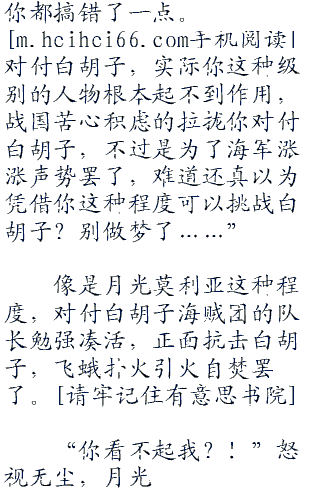 你都搞错了一点。
[m.hcihci66.com手机阅读|
对付白胡子，实际你这种级
别的人物根本起不到作用，
战国苦心积虑的拉拢你对付
白胡子，不过是为了海军涨
涨声势罢了，难道还真以为
凭借你这种程度可以挑战白
胡子？别做梦了……”
像是月光莫利亚这种程
度，对付白胡子海贼团的队
长勉强凑活，正面抗击白胡
子，飞蛾扑火引火自焚罢
了。[请牢记住有意思书院]
“你看不起我？！”怒
视无尘，月光